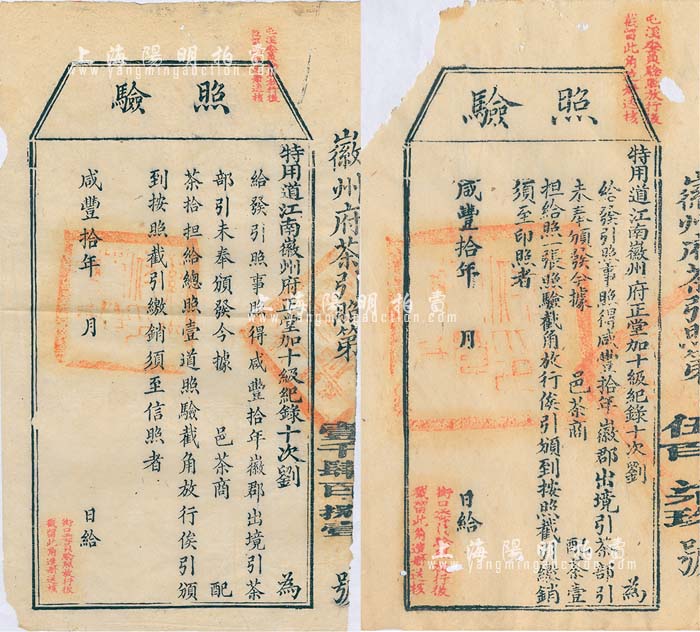 上海陽明拍賣
www.yangmingauction.com
屯溪
驗照
特用道江南徽州府正堂加十級紀錄十次劉 為
給發引照事照得咸豐拾年徽郡出境引茶
部引未奉頒發今據 邑茶商 配
茶拾担給總照壹道照驗截角放行俟引頒
到按照截引繳銷須至信照者
咸豐拾年 月 日給
徽州府茶引照第
壹千肆百拾 號
截留此角
屯溪 驗照放行後
截留此角 送核
驗照
特用道江南徽州府正堂加十級紀錄十次劉 為
給發引照事照得咸豐拾年徽郡出境引茶部引
未奉頒發今據 邑茶商 配茶壹
担給照一張照驗截角放行俟引頒到按照截引繳銷
須至印照者
咸豐拾年 月 日給
徽州府茶引照第
伍百 號
街口 放行後
截留此角
上海陽明拍賣
www.yangmingauction.com